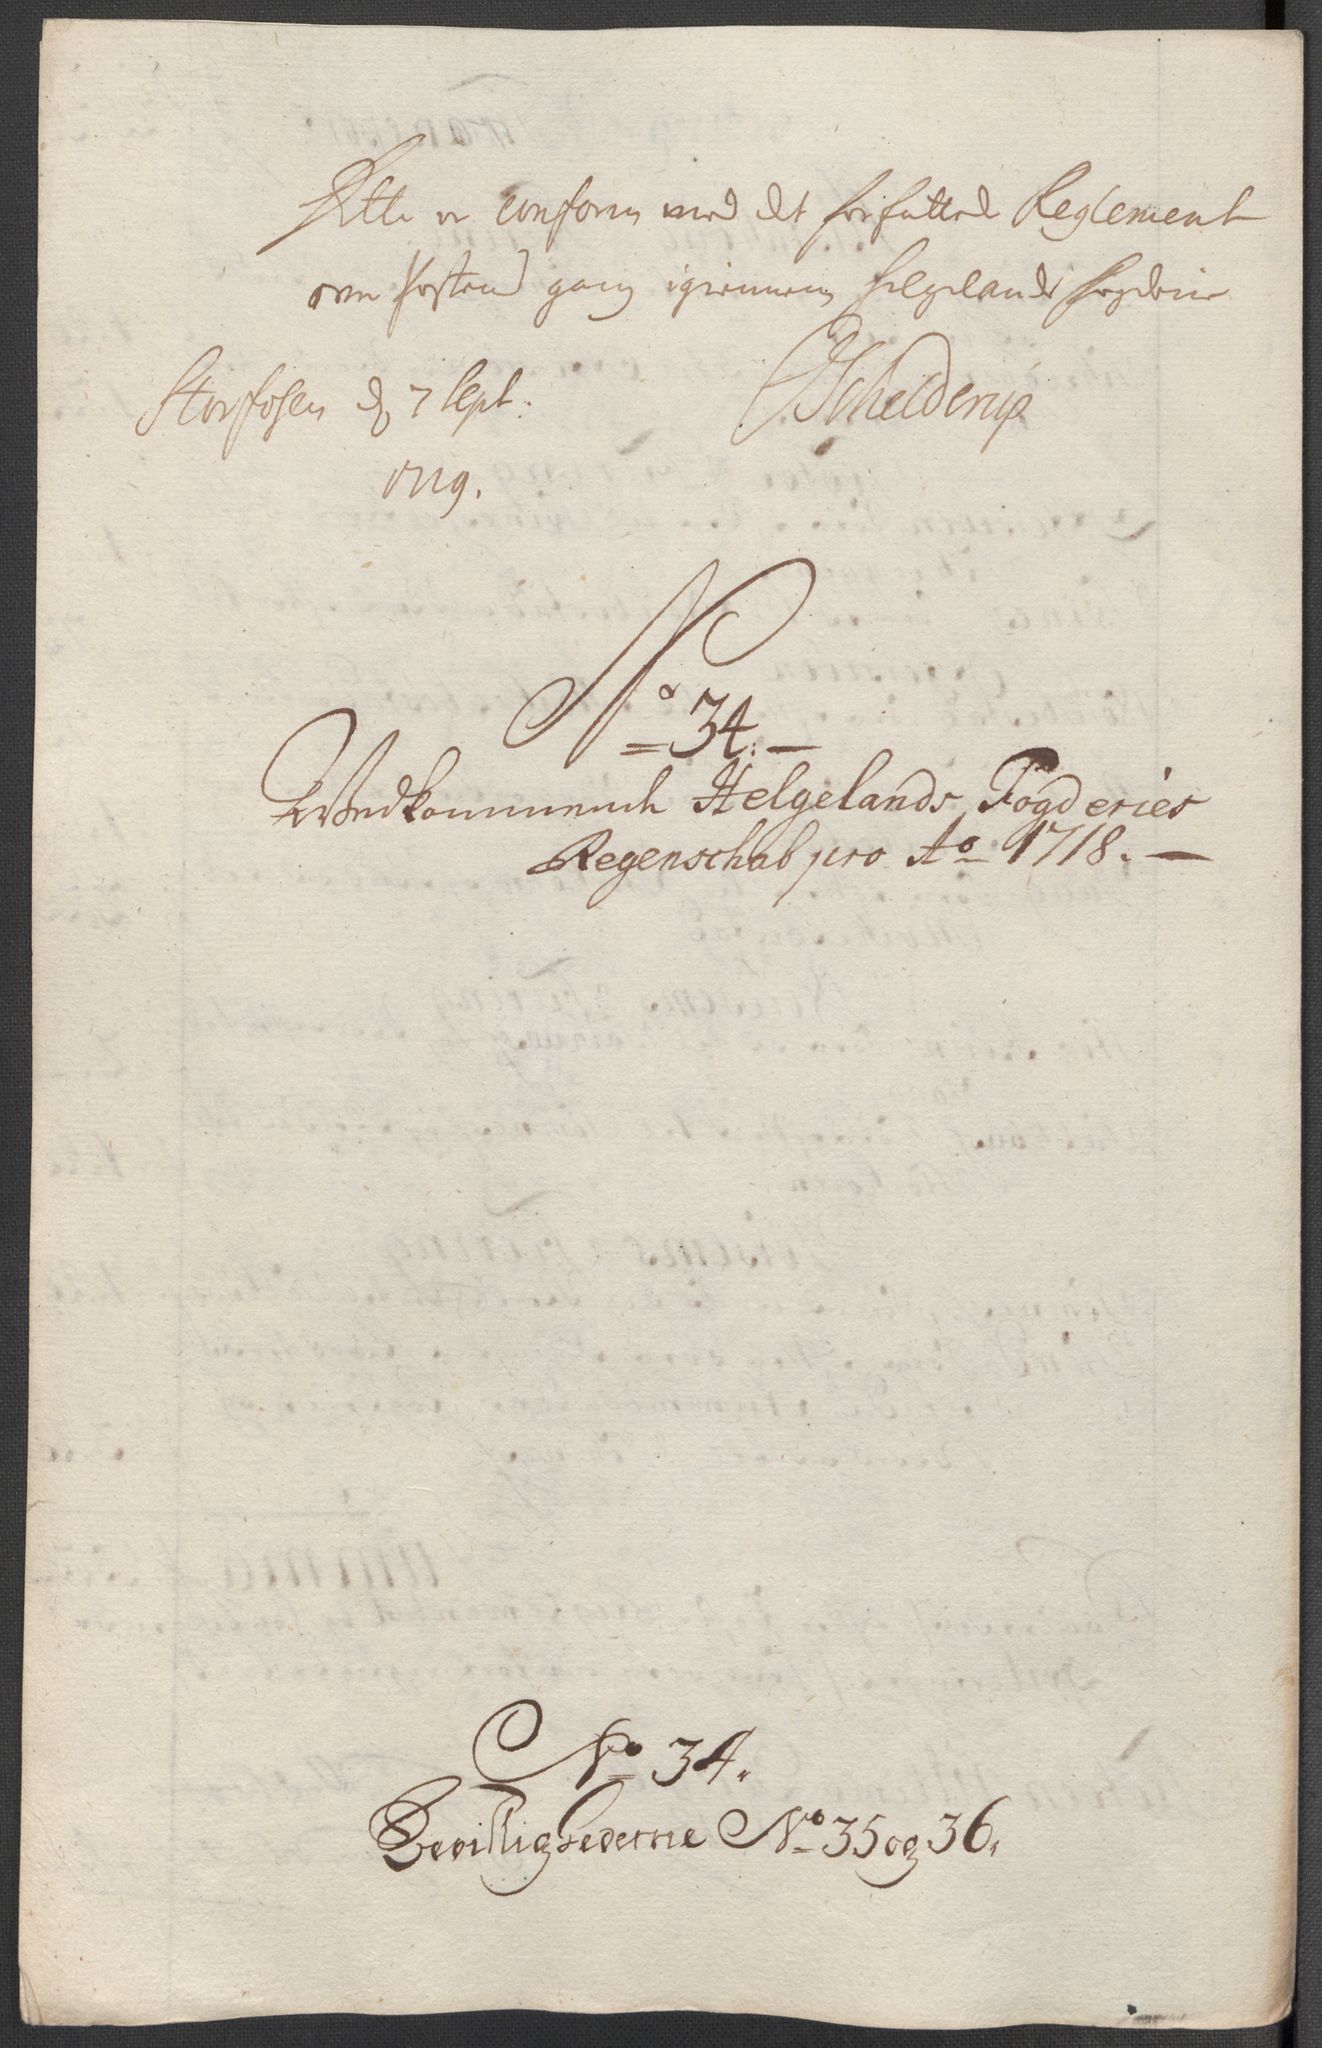 Dette er conform med det forfattede Reglement
over Postens gang igiennem Helgelands fogderie
Storfosen d. 7 Sept:
1719.
Schelderup
No 34. —
Vedkommende Helgelands Fogderies
Regenschab pro Ao 1718. —
No 34.
Bevillighederne No 35 og 36.